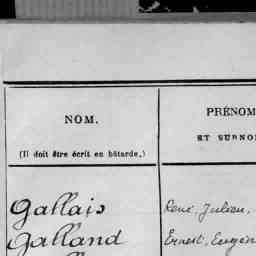 NOM.
(Il doit être écrit en bâtarde.)
PRÉNOM
ET SURNO
Gallais
René, Julien,
Galland
Ernest, Eugèn